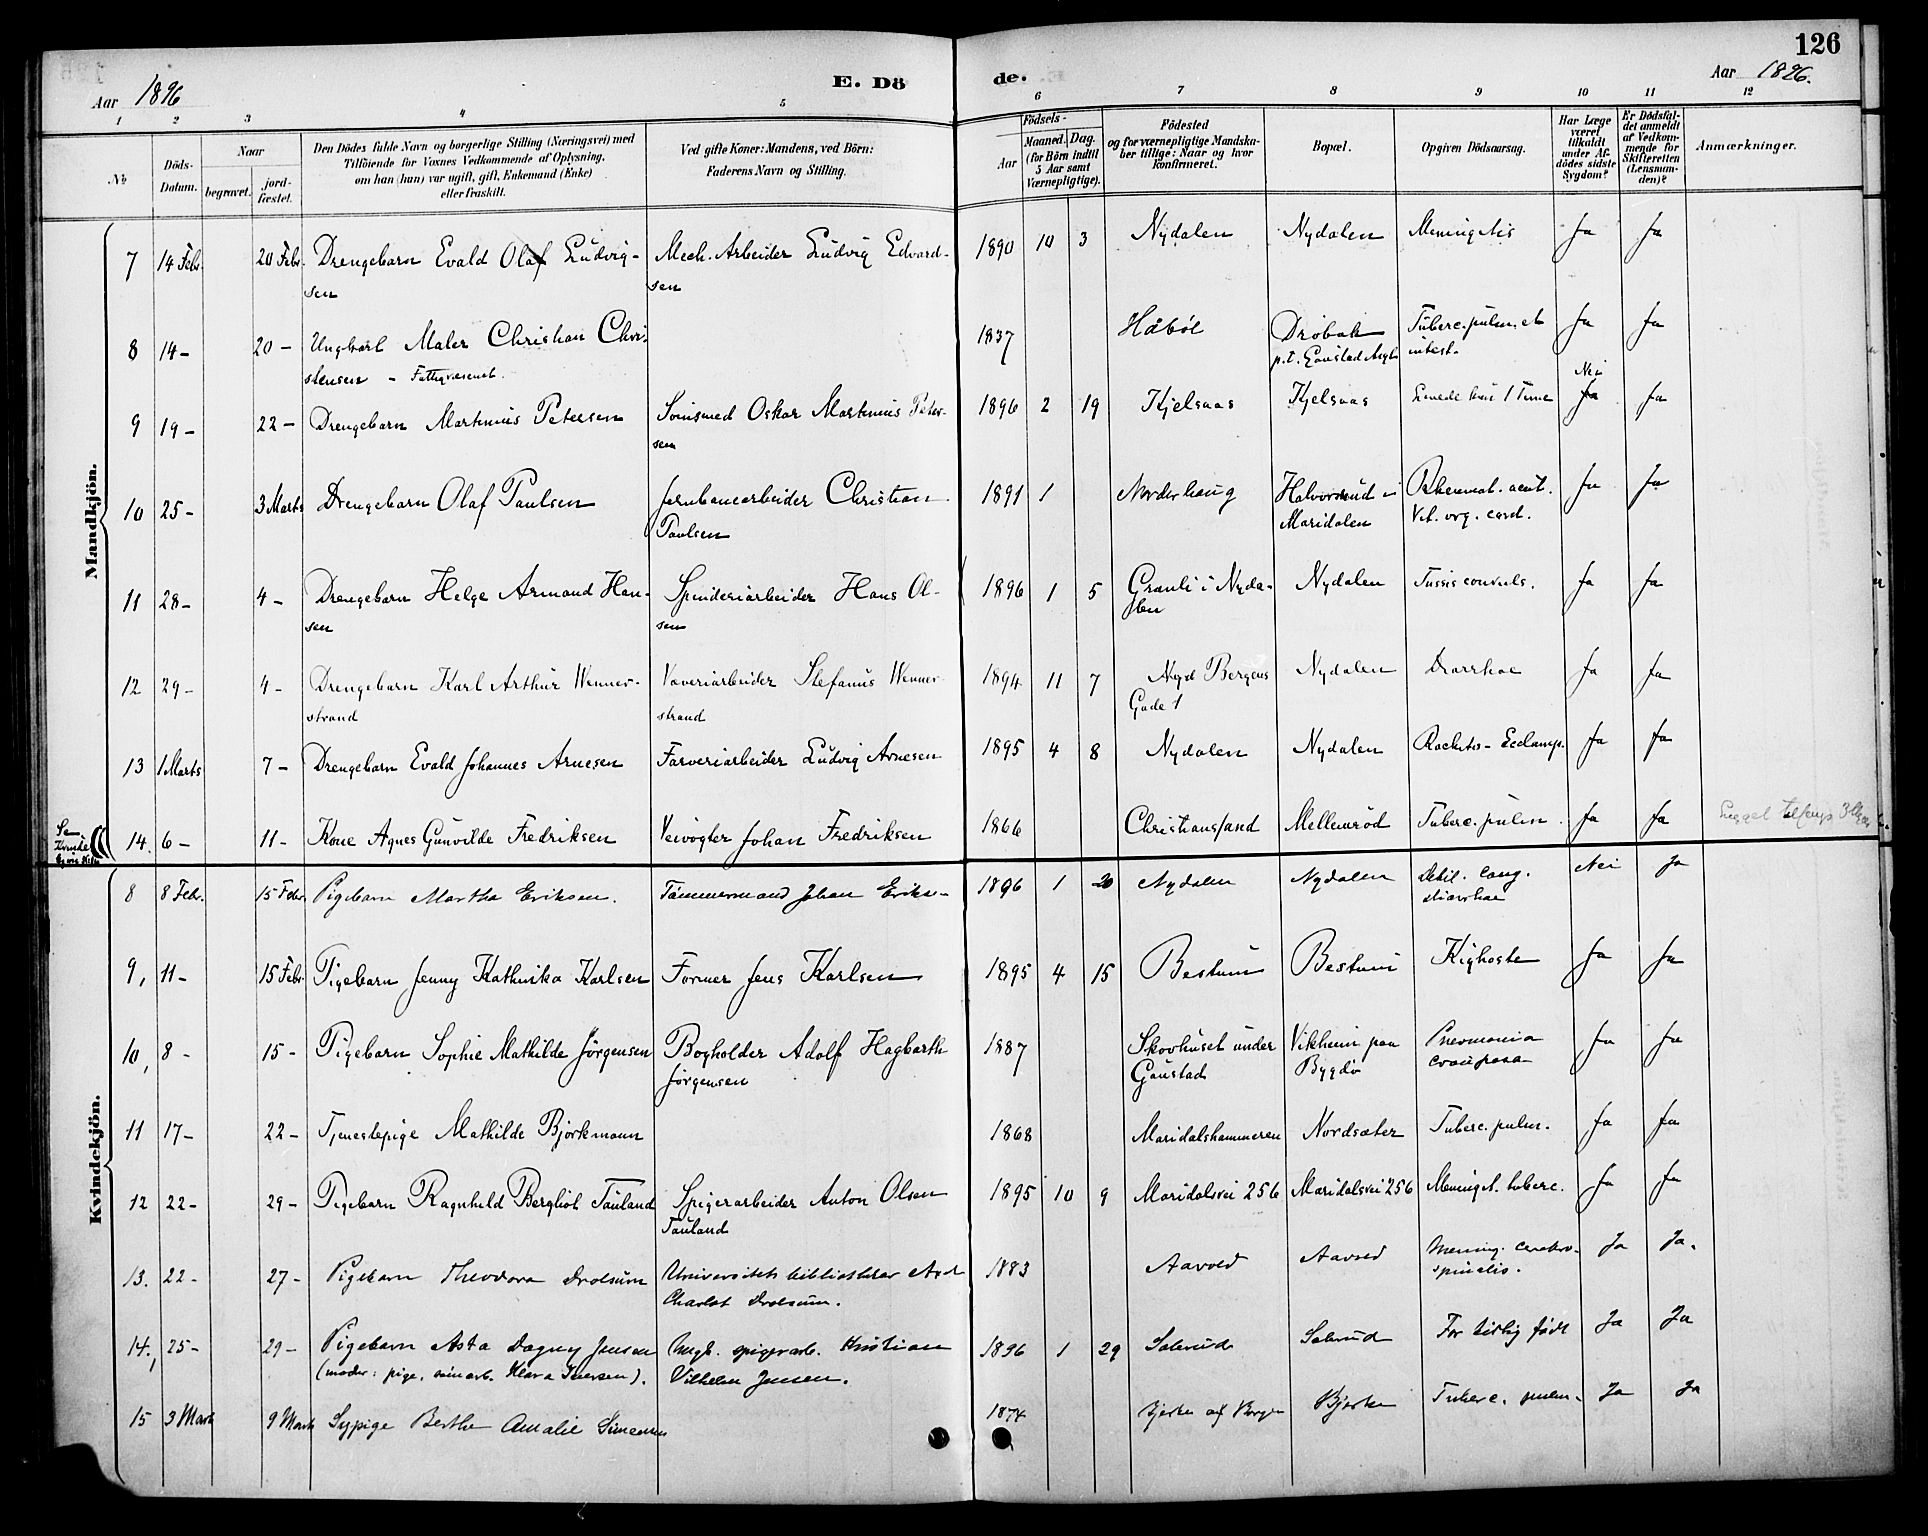 126
Aar 1896
E. Dö
de.
Aar 1896.
1 2 3 4 5 6 7 8 9 10 11 12
№
Döds-Datum.
Naar
begravet.
jord-fæstet.
Den Dödes fulde Navn og borgerlige Stilling (Næringsvei) med
Tilföiende for Voxnes Vedkommende af Oplysning.
om han (hun) var ugift, gift, Enkemand (Enke)
eller fraskilt.
Ved gifte Koner: Mandens, ved Börn:
Faderens Navn og Stilling.
Födsels-
Aar
Maaned. Dag.
(for Börn indtil
5 Aar samt
Værnepligtige).
Födested
og for værnepligtige Mandska-
ber tillige: Naar og hvor
konfirmeret.
Bopæl.
Opgiven Dödsaarsag.
Har Læge
været
tilkaldt
under Af-
dödes sidste
Sygdom?
Er Dödsfal-
det anmeldt
af Vedkom-
mende for
Skifteretten
(Lensman-
den)?
Anmærkninger.
Mandkjön.
7 14 Febr. 20 Febr. Drengebarn Evald Olaf Ludvig- Mech. Arbeider Ludvig Edvard- 1890 10 3 Nydalen Nydalen Meningitis Ja Ja
sen sen
8 14 - 20 - Ungkarl Maler Christian Chri- 1837 Håböl Dröbak Tuberc. pulm. et Ja Ja
stensen - Fattigvæsenet. p.t. Gaustad Asyl intest.
Nei
9 19 - 22 - Drengebarn Martinius Petersen Smed Oskar Martinius Peter- 1896 2 19 Kjelsaas Kjelsaas Levede kun 1 Time Ja Ja
sen
10 25 - 3 Marts Drengebarn Olaf Paulsen Jernbanearbeider Christian 1891 1 Norderhaug Halvorsrud i Rheumat. acut. Ja Ja
Paulsen Maridalen Vit. org. card.
11 28 - 4 - Drengebarn Helge Armand Han- Spinderiarbeider Hans Ol- 1896 1 5 Granli i Nyda- Nydalen Tussis convuls. Ja Ja
sen sen len
12 29 - 4 - Drengebarn Karl Arthur Wenner- Væveriarbeider Stefanus Wenner- 1894 11 7 Nyd Bergens Nydalen Diarrhoe Ja Ja
strand strand Gade 1
13 1 Marts 7 - Drengebarn Evald Johannes Arnesen Farveriarbeider Ludvig Arnesen 1895 4 8 Nydalen Nydalen Rachitis - Eclamp. Ja Ja
Se Kvinde
14. 6 - 11 - Kone Agnes Gunvilde Fredriksen Veivogter Johan Fredriksen 1866 Christianssand Mellemröd Tuberc. pulm. Ja Ja
Kvindekjön.
8 8 Febr. 15 Febr. Pigebarn Martha Eriksen. Tömmermand Johan Erikse- 1896 1 20 Nydalen Nydalen Debil. cong. Nei Ja
diarrhoe
9, 11 - 15 Febr Pigebarn Jenny Kathinka Karlsen Former Jens Karlsen 1895 4 15 Bestum Bestum Kighoste Ja Ja
10, 8 - 15 - Pigebarn Sophie Mathilde Jörgensen Bogholder Adolf Hagbarth 1887 Skovhuset under Vikheim paa Pneumonia Ja Ja
Jörgensen Gaustad Bygdö crouposa
11 17 - 22 - Tjenestepige Mathilde Björkmann 1868 Maridalshammeren Nordsæter Tuberc. pulm. Ja Ja
12 22 - 29 - Pigebarn Ragnhild Bergliot Tauland Spigerarbeider Anton Olsen 1895 10 9 Maridalsvei 256 Maridalsvei 256 Meningit. tuberc. Ja Ja
Tauland
13. 22 - 27 - Pigebarn Theodora Drolsum Universitetsbibliothekar Axel 1883 Aavold Aavold Mening. cerebro- Ja Ja.
Charlot Drolsum. spinalis.
14., 25 - 29 - Pigebarn Asta Dagny Jensen Ungk. spigerarb. Kristian 1896 1 29 Solerud Solerud For tidlig födt Ja Ja
(moder: pige, Klara Iversen). Vilhelm Jensen.
15 3 Mart 9 Marts Sypige Berthe Amalie Simensen 1874 Bjerke af Bjerke Tuberc. pulm. Ja Ja